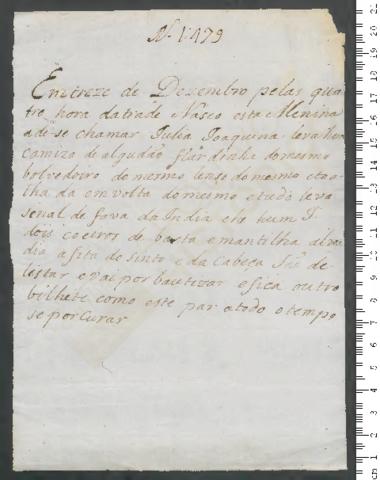 N. 1479
Em treze de Dezembro pelas qua
tro hora da trade Nasco esta Menina
ade se chamar Julia Joaquina leva huã
camiza de algudão do mesmo
bolvedoiro do mesmo lenso do mesmo etoa
lha da em volta do mesmo e tudo leva
senal de fava da India eis hum J
dois coeiros de baeta e mantilha
a fita de Sinto e da Cabeça São de
listar e vai por bautizar e fica outro
bilhete como este par atodo o tempo
se por Curar
cm 1 2 3 4 5 6 7 8 9 10 11 12 13 14 15 16 17 18 19 20 21